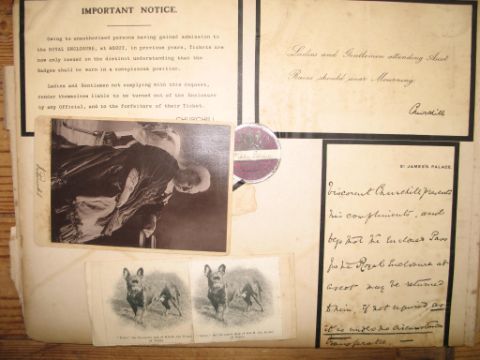 IMPORTANT NOTICE.
Owing to unauthorised persons having gained admission to
the ROYAL ENCLOSURE, at ASCOT, in previous years, Tickets are
now only issued on the distinct understanding that the
Badges shall be worn in a conspicuous position.
Ladies and Gentlemen not complying with this request,
render themselves liable to be turned out of the Enclosure
by any Official, and to the forfeiture of their Ticket.
CHURCHILL
Ladies and Gentlemen attending Ascot
Races should wear Mourning.
Churchill
ST JAMES'S PALACE.
Viscount Churchill presents
his compliments, and
begs that the enclosed Pass
for the Royal Enclosure at
Ascot may be returned
to him, if not required as
it is under no circumstances
transferable. —